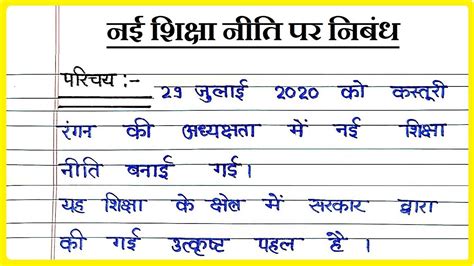 नई शिक्षा नीति पर निबंध
परिचय :- 29 जुलाई 2020 को कस्तूरी
रंगन की अध्यक्षता में नई शिक्षा
नीति बनाई गई।
यह शिक्षा के क्षेत्र में सरकार द्वारा
की गई उत्कृष्ट पहल है।